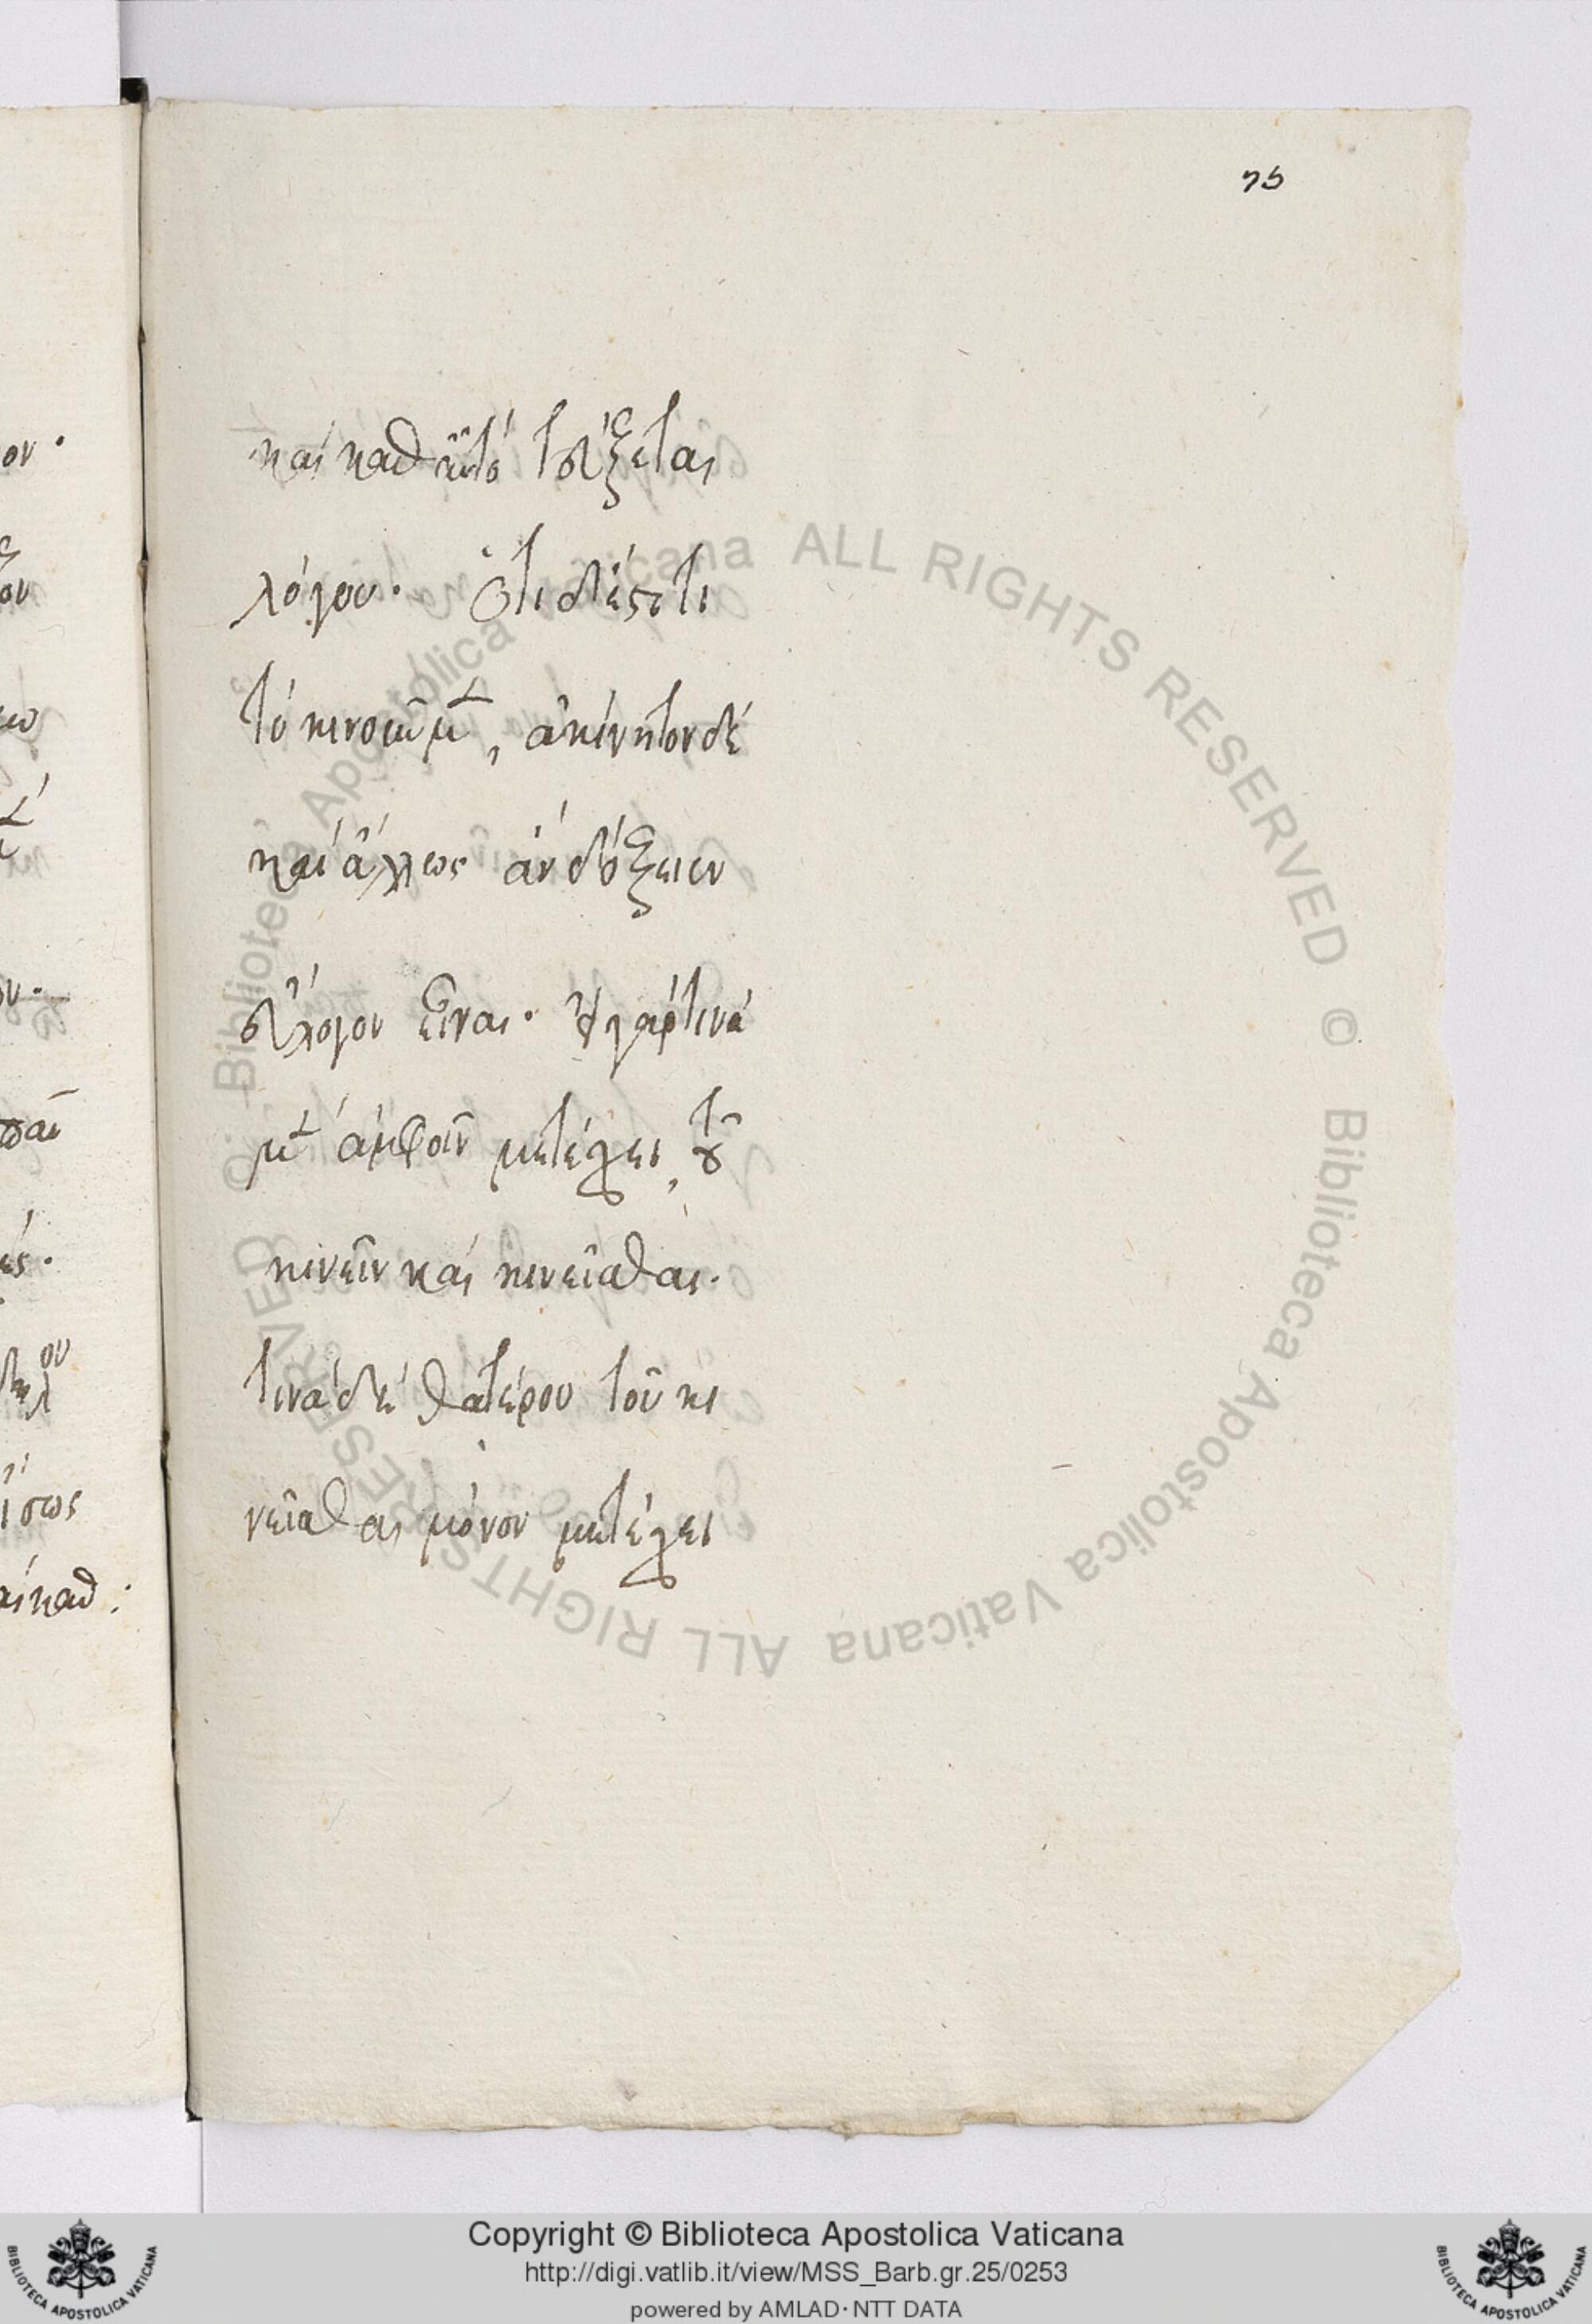 75
καὶ καθ αὑτὸ τεύξεται
λόγου. Ὅτι δέ ἐστι
τὸ κινοῦν μὲν, ἀκίνητον δὲ
καὶ ἄλλως ἂν δόξειεν
εὔλογον εἶναι. εἰ γάρ τινα
μὲν ἀμφοῖν μετέχει, τοῦ
κινεῖν καὶ κινεῖσθαι.
τινὰ δὲ θατέρου τοῦ κι
νεῖσθαι μόνον μετέχει
ον.
ον
ν.
ές.
ἴσως
αὶ καθ:
© Biblioteca Apostolica Vaticana ALL RIGHTS RESERVED © Biblioteca Apostolica Vaticana ALL RIGHTS RESERVED
Copyright © Biblioteca Apostolica Vaticana
http://digi.vatlib.it/view/MSS_Barb.gr.25/0253
powered by AMLAD·NTT DATA
BIBLIOTECA APOSTOLICA VATICANA
BIBLIOTECA APOSTOLICA VATICANA